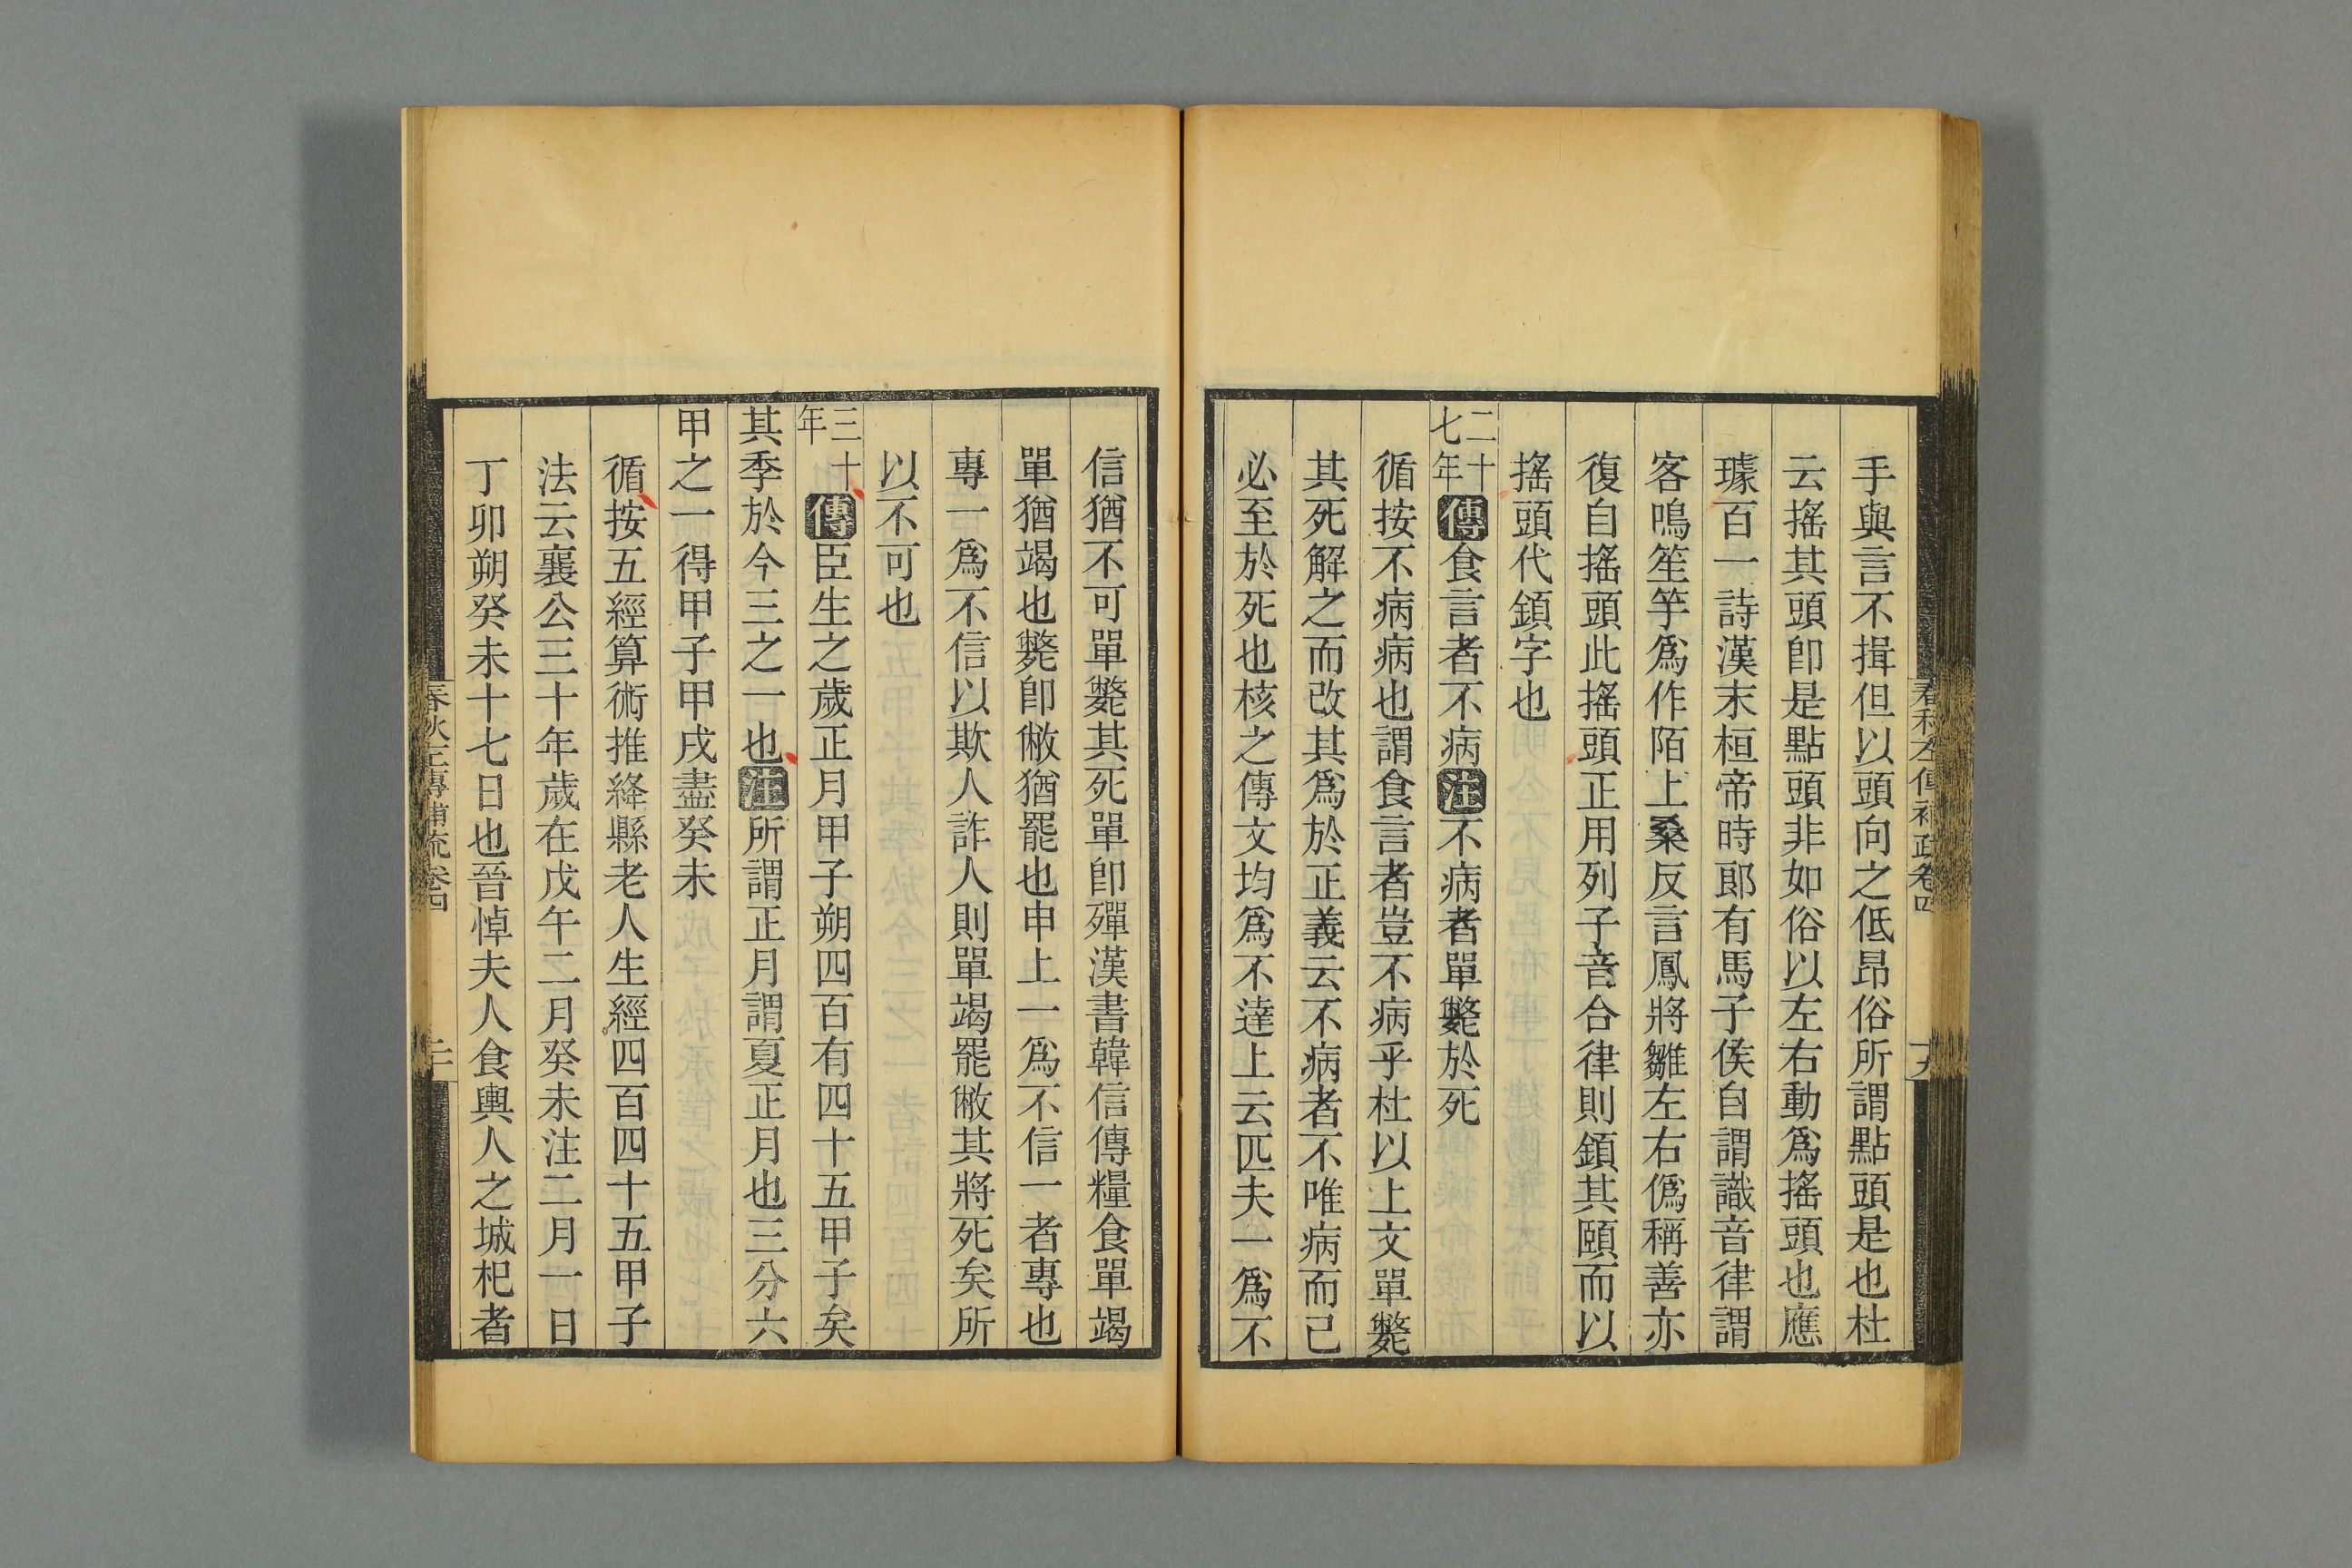 手與言不揖但以頭向之低昂俗所謂點頭是也杜
云搖其頭卽是點頭非如俗以左右動爲搖頭也應
璩百一詩漢末桓帝時郞有馬子侯自謂識音律謂
客鳴笙竽爲作陌上桑反言鳳將雛左右僞稱善亦
復自搖頭此搖頭正用列子音合律則鎮其頤而以
搖頭代鎮字也
二十七年傳食言者不病注不病者單斃於死
循按不病病也謂食言者豈不病乎杜以上文單斃
其死解之而改其爲於正義云不病者不唯病而已
必至於死也核之傳文均爲不達上云匹夫一爲不
春秋左傳補疏卷四
十九
信猶不可單斃其死單卽殫漢書韓信傳糧食單竭
單猶竭也斃卽敝猶罷也申上一爲不信一者專也
專一爲不信以欺人詐人則單竭罷敝其將死矣所
以不可也
三十年傳臣生之歲正月甲子朔四百有四十五甲子矣
其季於今三之一也注所謂正月謂夏正月也三分六
甲之一得甲子甲戌盡癸未
循按五經算術推絳縣老人生經四百四十五甲子
法云襄公三十年歲在戊午二月癸未注二月一日
丁卯朔癸未十七日也晉悼夫人食輿人之城杞者
春秋左傳補疏卷四
二十